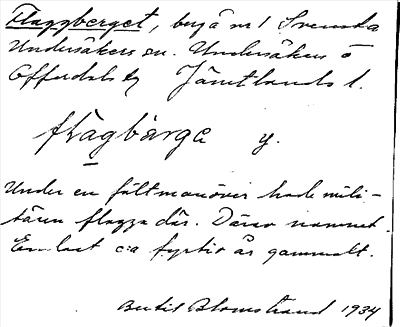 Flaggberget, berg å nr 1 Svenska
Undersåkers sn. Undersåkers o
Offerdals tg Jämtlands l.
flàgbärge y.
Under en fältmanöver hade mili-
tären flagga där. Därav namnet.
Endast c:a fyrtio år gammalt.
Bertil Blomstrand 1934